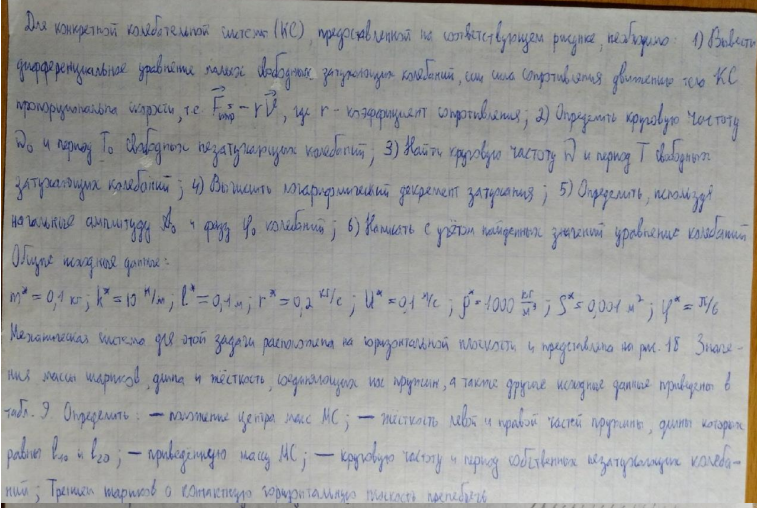 Для конкретной колебательной системы (КС), предоставленной на соответствующем рисунке, необходимо: 1) Вывести
дифференциальное уравнение малых свободных затухающих колебаний, если сила сопротивления движению тела КС
пропорциональна скорости, т.е. F = - r V, где r - коэффициент сопротивления; 2) Определить круговую частоту
ω₀ и период T₀ свободных незатухающих колебаний; 3) Найти круговую частоту ω и период T свободных
затухающих колебаний; 4) Вычислить логарифмический декремент затухания; 5) Определить, используя
начальные амплитуду A₀ и фазу φ₀ колебаний; 6) Написать с учётом найденных значений уравнение колебаний
Общие исходные данные:
m* = 0,1 кг; k* = 10 н/м; l* = 0,1 м; r* = 0,2 кг/с; U* = 0,1 м/с; ρ* = 1000 кг/м³; S* = 0,001 м²; φ* = π/6
Механическая система для этой задачи расположена на горизонтальной плоскости и представлена на рис. 18 Значе-
ния массы шариков, длина и жёсткость, соединяющих их пружин, а также другие исходные данные приведены в
табл. 9. Определить: — положение центра масс МС; — жёсткость левой и правой частей пружины, длины которых
равны l₁₀ и l₂₀; — приведённую массу МС; — круговую частоту и период собственных незатухающих колеба-
ний; Трением шариков о контактную горизонтальную плоскость пренебречь